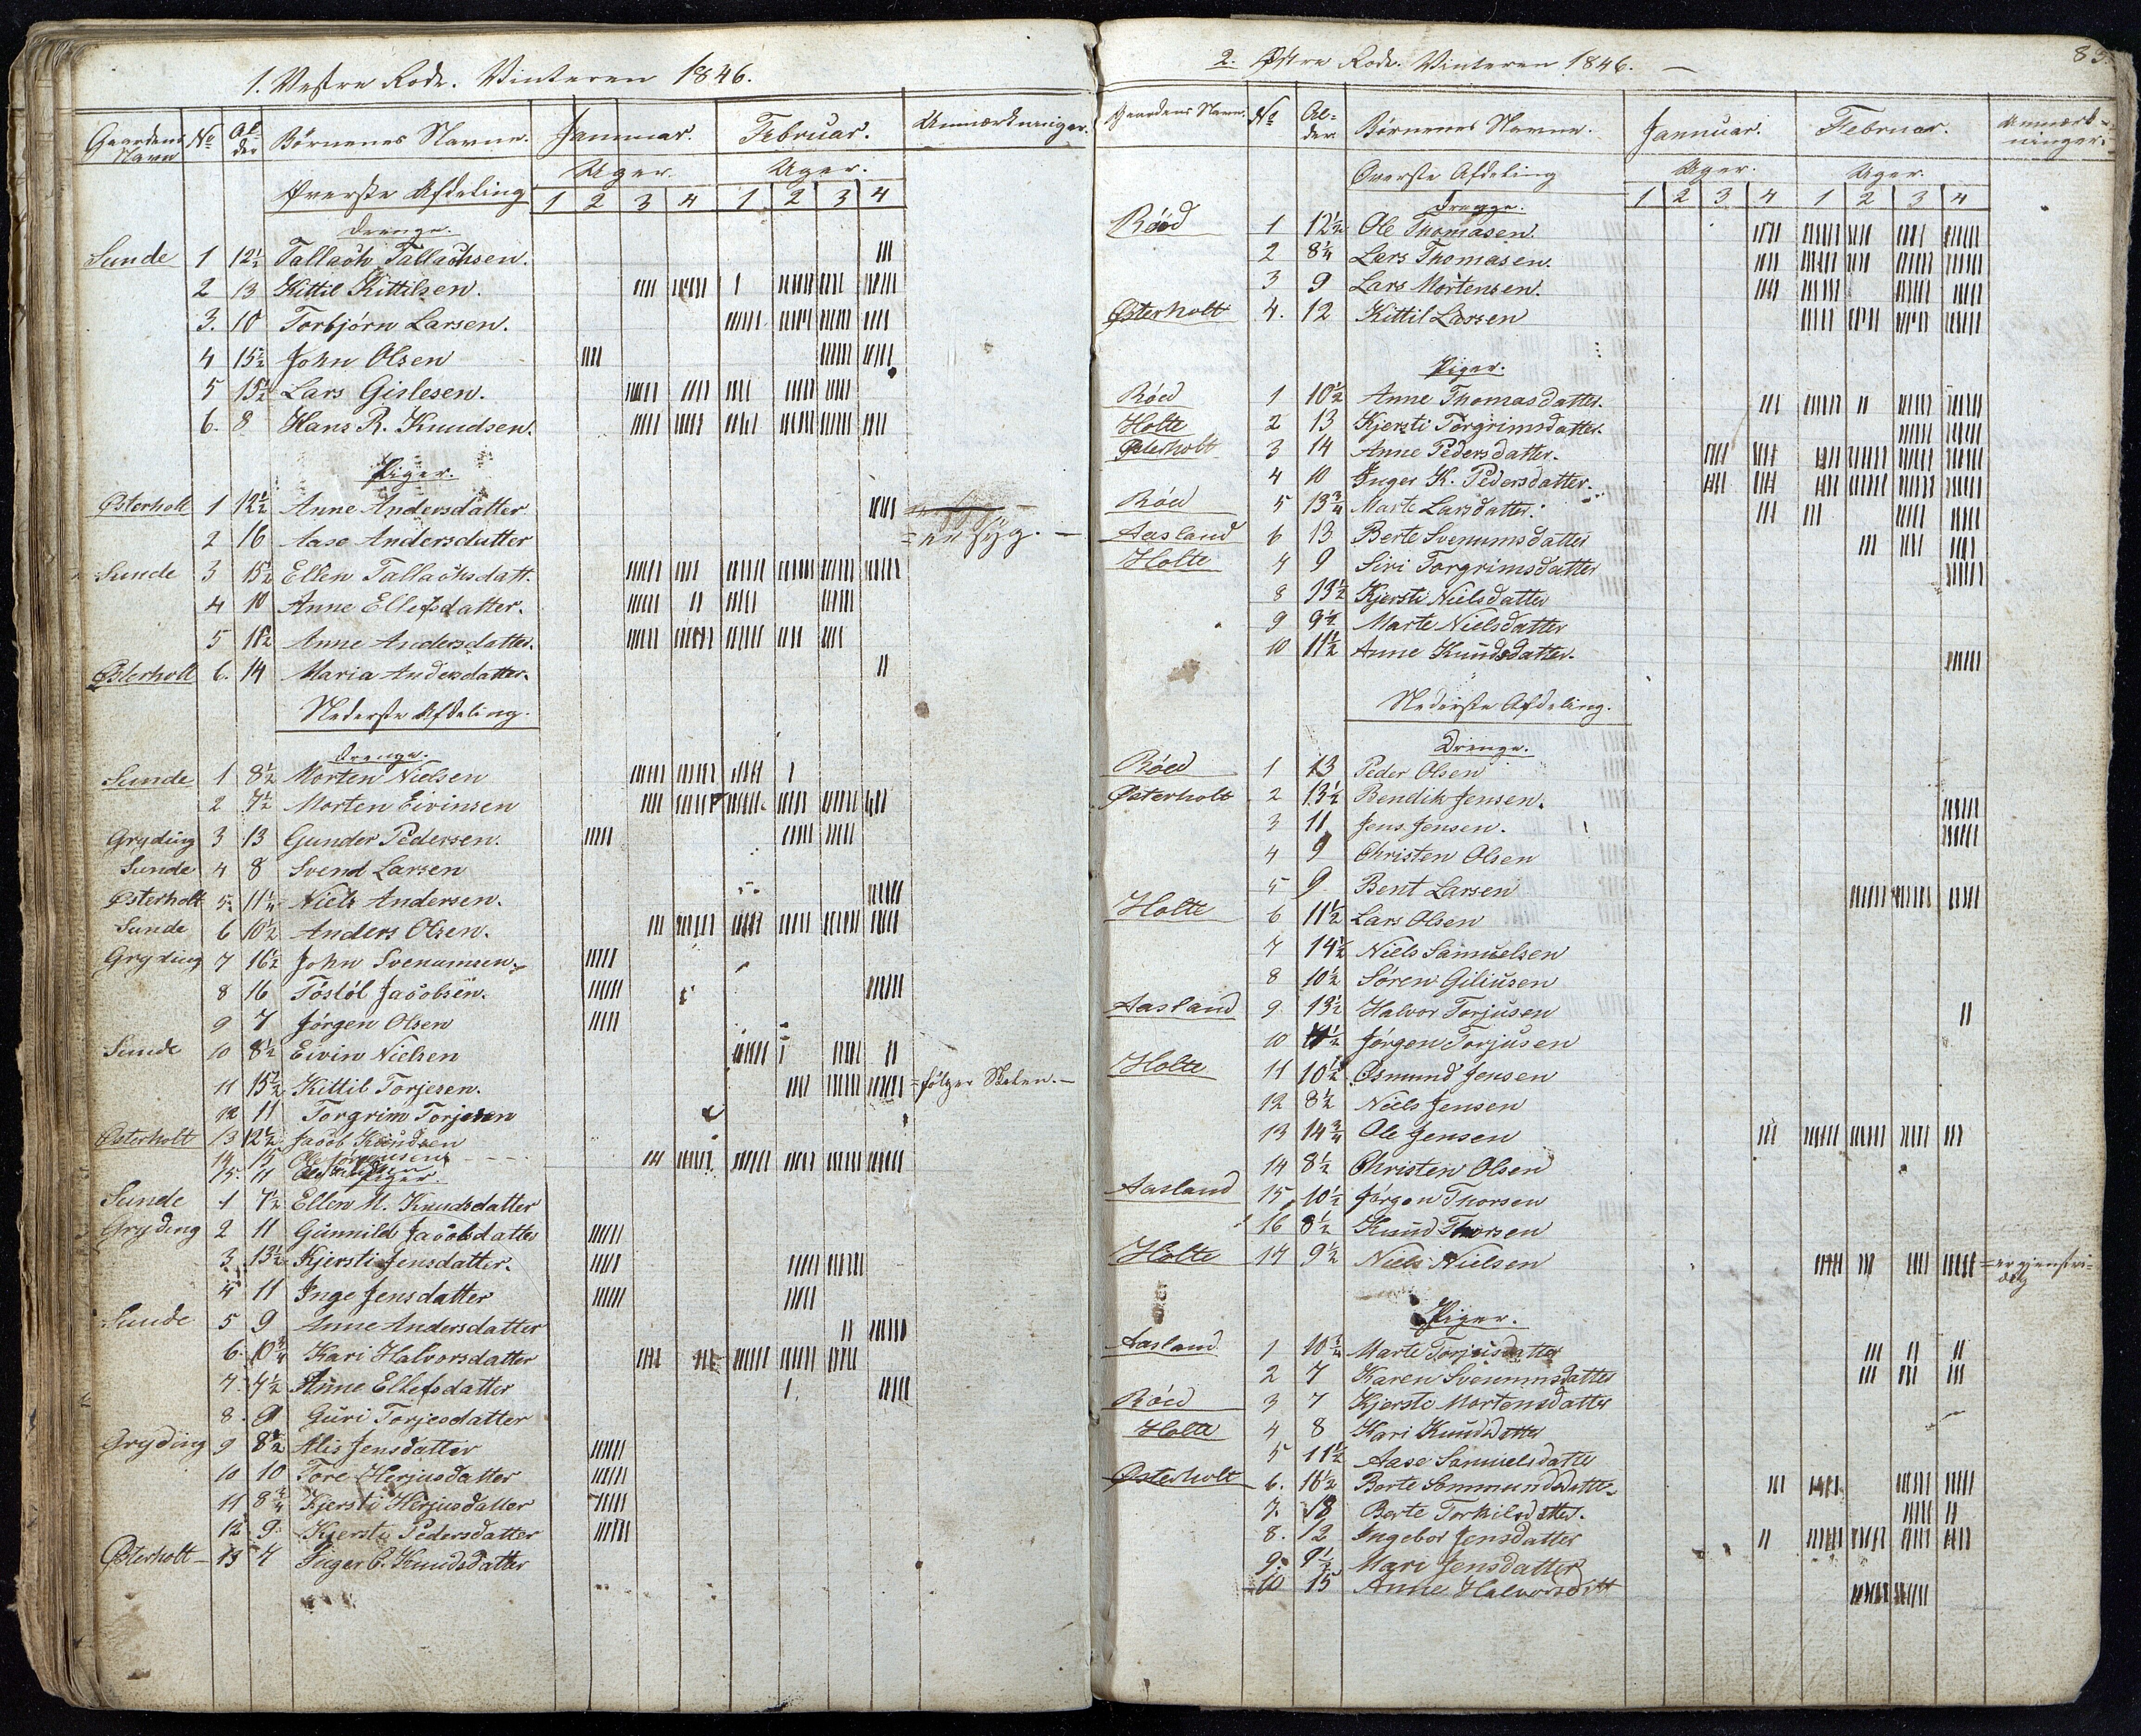 1. Vestre Rode. Vinteren 1846.
Gaardens Navn № Alder Børnenes Navne. Januar. Februar. Anmærkninger.
Øverste Afdeling Uger. Uger.
1 2 3 4 1 2 3 4
Drenge.
Sunde 1 12½ Tallach Tallachsen.
2 13 Kittil Kittilsen.
3. 10 Torbjørn Larsen.
4 15½ John Olsen
5 15½ Lars Gislesen.
6. 8 Hans R. Knudsen.
Piger.
Østerholt 1 12½ Anne Andersdatter
2 16 Aase Andersdatter = er syg. —
Sunde 3 15½ Ellen Tallachsdatt.
4 10 Anne Ellefsdatter.
5 11½ Anne Andersdatter.
Østerholt 6. 14 Maria Andersdatter.
Nederste Afdeling.
Drenge.
Sunde 1 8½ Morten Nielsen
2 7½ Morten Eivinsen
Gryding 3 13 Gunder Pedersen.
Sunde 4 8 Svend Larsen
Østerholt 5. 11¼ Niels Andersen.
Sunde 6 10½ Anders Olsen.
Gryding 7 16½ John Svenumsen.
8 16 Tostøl Jacobsen.
9 7 Jørgen Olsen
Sunde 10 8½ Eivin Nielsen
11 15½ Kittil Torjesen. = følger Skolen. —
12 11 Torgrim Torjesen
Østerholt 13 12½ Jacob Knudsen
14 15 Ole Jørgensen
15. 11 Ole
Piger.
Sunde 1 7½ Ellen M. Knudsdatter
Gryding 2 11 Gunnild Jacobsdatter
3 13½ Kjersti Jensdatter.
4 11 Inge Jensdatter
Sunde 5 9 Anne Andersdatter
6. 10¾ Kari Halvorsdatter
7. 7½ Anne Ellefsdatter
8. 9 Guri Torjesdatter
Gryding 9 8½ Alis Jensdatter
10 10 Tore Herjusdatter
11 8¾ Kjersti Herjusdatter
12 9. Kjersti Pedersdatter
Østerholt 13 7 Inger C. Knudsdatter
2. Østre Rode. Vinteren 1846. — 83.
Gaardens Navn. № Alder Børnenes Navne. Januar. Februar. Anmærkninger.
Øverste Afdeling Uger. Uger.
1 2 3 4 1 2 3 4
Drenge.
Röed 1 12½ Ole Thomasen.
2 8¼ Lars Thomasen.
3 9 Lars Mortensen.
Østerholt 4. 12 Kittil Larsen
Piger.
Röed 1 10½ Anne Thomasdatter.
Holte 2 13 Kjersti Torgrimsdatter.
Østerholt 3 14 Anne Pedersdatter.
4 10 Inger K. Pedersdatter.
Röed 5 13¾ Marte Larsdatter.
Aasland 6 13 Berte Svenumsdatter
Holte 7 9 Siri Torgrimsdatter
8 13½ Kjersti Nielsdatter
9 9½ Marte Nielsdatter
10 11½ Anne Knudsdatter.
Nederste Afdeling.
Drenge.
Röed 1 13 Peder Olsen
Østerholt 2 13½ Bendik Jensen.
3 11 Jens Jensen.
4 9 Christen Olsen
5 9 Bent Larsen
Holte 6 11½ Lars Olsen
7 14½ Niels Samuelsen
8 10½ Søren Giliusen
Aasland 9 13½ Halvor Torjusen
10 11½ Jørgen Torjusen
Holte 11 10½ Osmund Jensen
12 8½ Niels Jensen
13 14¾ Ole Jensen
14 8½ Christen Olsen
Aasland 15 10½ Jørgen Thorsen
16 8½ Knud Thorsen
Holte 17 9½ Niels Nielsen = er gjenstridig
Piger.
Aasland 1 10¾ Marte Torjusdatter
2 7 Karen Svenumsdatter
Röed 3 7 Kjersti Mortensdatter
Holte 4 8 Kari Knudsdatter
5 11½ Aase Samuelsdatter
Østerholt 6. 16½ Berte Sommundsdatt.
7. 18 Berte Torkilsdatter.
8. 12 Ingebor Jensdatter
9. 9½ Mari Jensdatter
10 15 Anne Halvorsdatt